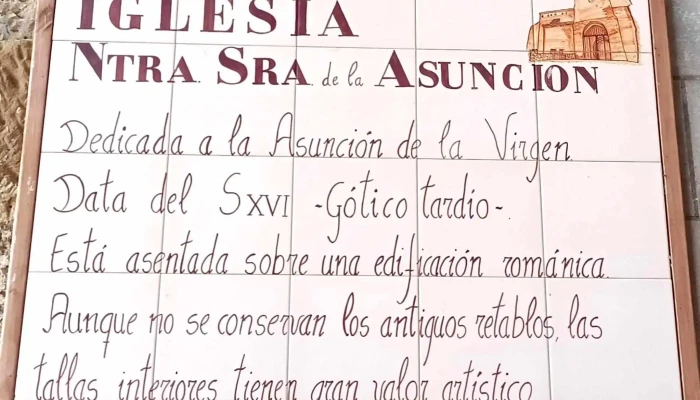 IGLESIA
NTRA. SRA. de la ASUNCION
Dedicada a la Asunción de la Virgen.
Data del SXVI -Gótico tardío-.
Está asentada sobre una edificación románica.
Aunque no se conservan los antiguos retablos, las
tallas interiores tienen gran valor artístico